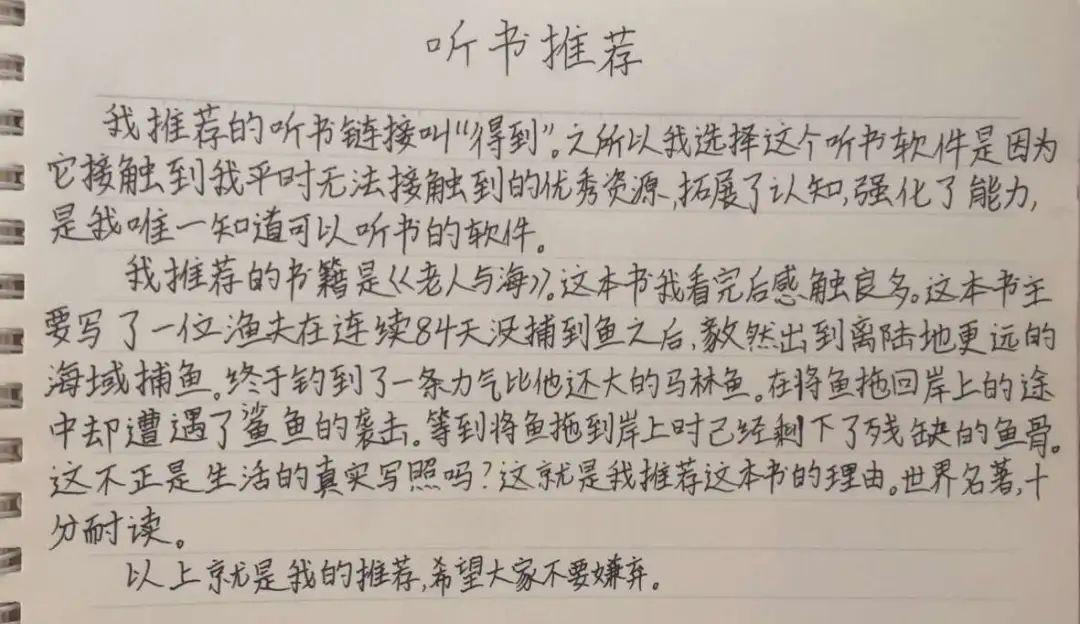 听书推荐
我推荐的听书链接叫“得到”。之所以我选择这个听书软件是因为
它接触到我平时无法接触到的优秀资源,拓展了认知,强化了能力,
是我唯一知道可以听书的软件。
我推荐的书籍是《老人与海》。这本书我看完后感触良多。这本书主
要写了一位渔夫在连续84天没捕到鱼之后,毅然出到离陆地更远的
海域捕鱼。终于钓到了一条力气比他还大的马林鱼。在将鱼拖回岸上的途
中却遭遇了鲨鱼的袭击。等到将鱼拖到岸上时已经剩下了残缺的鱼骨。
这不正是生活的真实写照吗?这就是我推荐这本书的理由。世界名著,十
分耐读。
以上就是我的推荐,希望大家不要嫌弃。